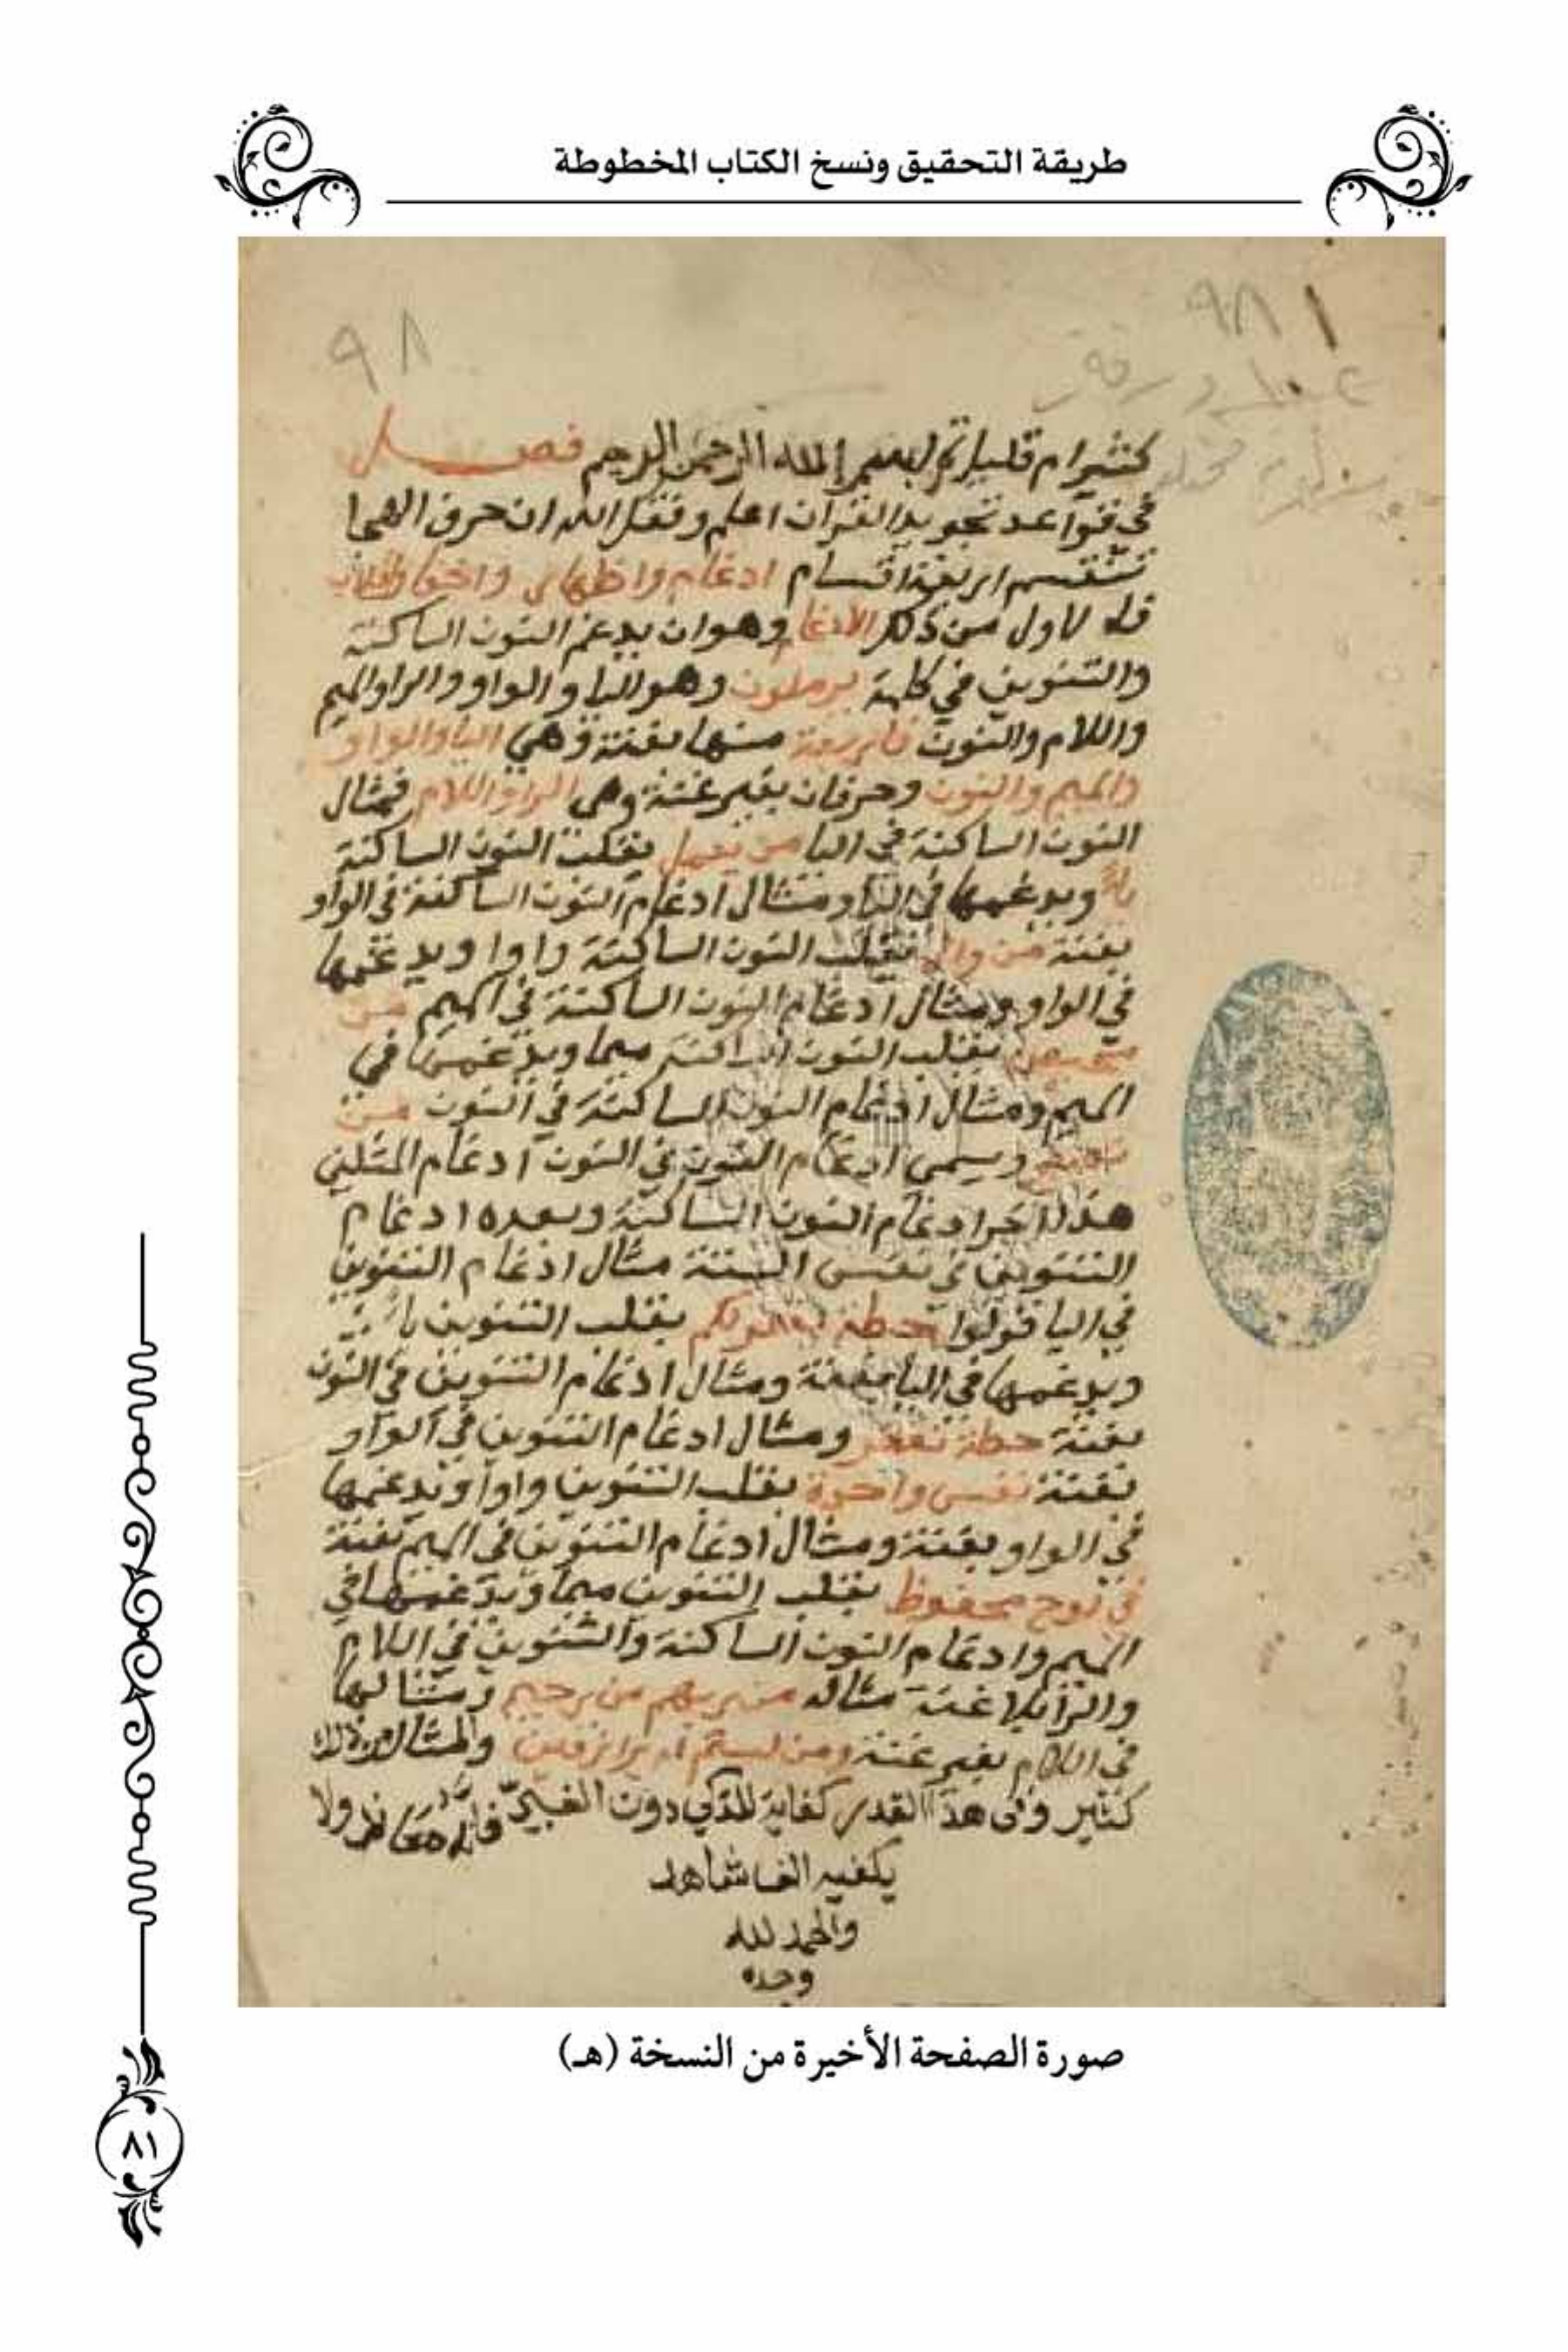 طريقة التحقيق ونسخ الكتاب المخطوطة
٩٨١
٩٨
كثيرا م قليلا تم بسم الله الرحمن الرحيم فصل
في قواعد تجويد القران اعلم وفقك الله ان حرف الهجا
تنقسم اربعة اقسام ادغام واظهار واخفا
الاول من ذلك الادغام وهو ان يدغم النون الساكنة
والتنوين في كلمة يرملون وهو اليا والواو والرا والميم
واللام والنون فاربعة منها بغنة وهي اليا والواو
والميم والنون وحرفان بغير غنة وهي الرا واللام فمثال
النون الساكنة في اليا من يعمل يقلب النون الساكنة
ياءً ويدغمها في اليا ومثال ادغام النون الساكنة في الواو
بغنة من وال يقلب النون الساكنة واوا ويدغمها
في الواو ومثال ادغام النون الساكنة في الميم من
يقلب النون الساكنة ميما ويدغمها في
الميم ومثال ادغام النون الساكنة في النون من
ويسمى ادغام النون في النون ادغام المثلين
هذا اخر ادغام النون الساكنة وبعده ادغام
التنوين في نفس الستة مثال ادغام التنوين
في اليا قولوا حطة يغفر لكم يقلب التنوين ياء
ويدغمها في اليا بغنة ومثال ادغام التنوين في النون
بغنة حطة نغفر ومثال ادغام التنوين في الواو
بغنة نفس واحدة يقلب التنوين واوا ويدغمها
في الواو بغنة ومثال ادغام التنوين في الميم بغنة
في لوح محفوظ يقلب التنوين ميما ويدغمها في
الميم وادغام النون الساكنة والتنوين في اللام
والرا بلا غنة مثاله من ربهم من رحيم ومثالها
في اللام بغير غنة ومن لستم له برازقين والمثال من ذلك
كثير وفى هذا القدر كفاية للذكي دون الغبيّ ولا
يكفيه الف شاهد
والحمد لله
وحده
صورة الصفحة الأخيرة من النسخة (هـ)
٨١